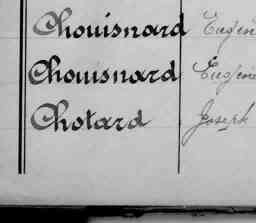 Chouisnard Eugène
Chouisnard Eugène
Chotard Joseph